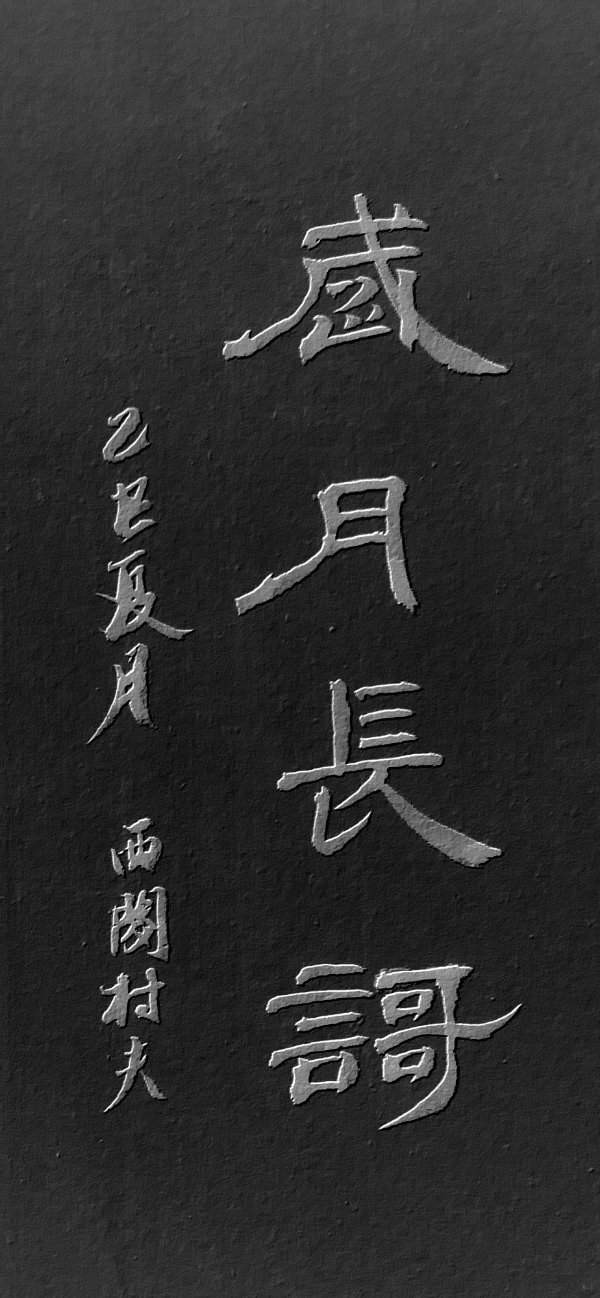 歲月長謌
乙巳夏月 西關村夫